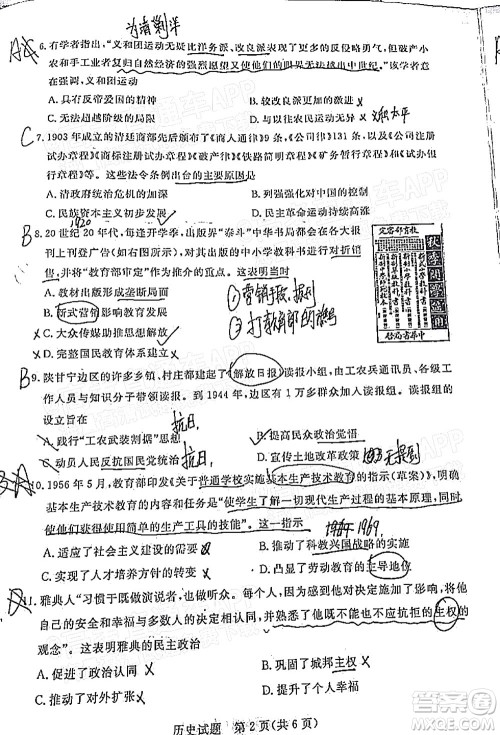 为清剿洋
6. 有学者指出，“义和团运动无疑比洋务派、改良派表现了更多的反侵略勇气，但破产小
农和手工业者复归自然经济的强烈愿望又使他们的世界无法越出中世纪。”该学者意
在强调，义和团运动
A. 具有反帝爱国的精神
B. 较改良派更具有革命性
C. 无法超越阶级的局限
D. 与以往农民运动无异
太平
C 7. 1903 年成立的清廷商部先后颁布了《商人通律》9 条，《公司律》131 条，《公司注册
试办章程》《商标注册试办章程》《破产律》《铁路简明章程》《矿务暂行章程》和《试办银行
章程》等。这些法令条例出台的主要原因是
A. 清政府统治危机的加深
B. 列强侵华方式的变化
C. 民族资本主义初步发展
D. 民主革命运动持续高涨
1920
B 8. 20 世纪 20 年代，每逢开学季，出版业“泰斗”中华书局都会在各大报
刊上刊登广告（如右图所示），对其出版的中小学教科书进行对折销
售，并将“教育部审定”作为推介的重点。这表明当时
A. 教材出版形成垄断局面
B. 新式营销影响教育发展
C. 大众传媒助推思想解放
D. 完整国民教育体系建立
①营销手段，报刊
②打教育部的旗号
教育部审定
秋季开学适用
中华书局启
B 9. 陕甘宁边区的许多乡镇、村庄都建起了《解放日报》读报小组，由工农兵通讯员、县级工
作人员和知识分子带领读报。到 1944 年，边区有 1 万多人加入读报组。读报组的
设立旨在
抗日
A. 践行“工农武装割据”思想
B. 提高民众政治觉悟
C. 动员人民反抗国民党统治
D. 宣传土地改革政策
抗日
10. 1956 年 5 月，教育部印发《关于普通学校实施基本生产技术教育的指示（草案）》，规定
基本生产技术教育的内容和任务是“使学生了解一切现代生产过程的基本原理，同时
使他们获得使用简单的生产工具的技能”。这一指示
A. 适应了社会主义建设的需要
B. 推动了科教兴国战略的实施
C. 实现了人才培养方针的转变
D. 凸显了劳动教育的主导地位
11. 雅典人“习惯于既做演说者，也做听众。每个人都参与政治，因为个人感到所属于他
自己的安全和幸福与多少世代以来的城邦息息相关，并熟悉了他既不能也不应抗拒的主权的
观念”。这表明雅典的民主政治
A. 促进了政治认同
B. 巩固了城邦主权
C. 有利于对外扩张
D. 实现了人民幸福
历史试题 第 2 页（共 6 页）